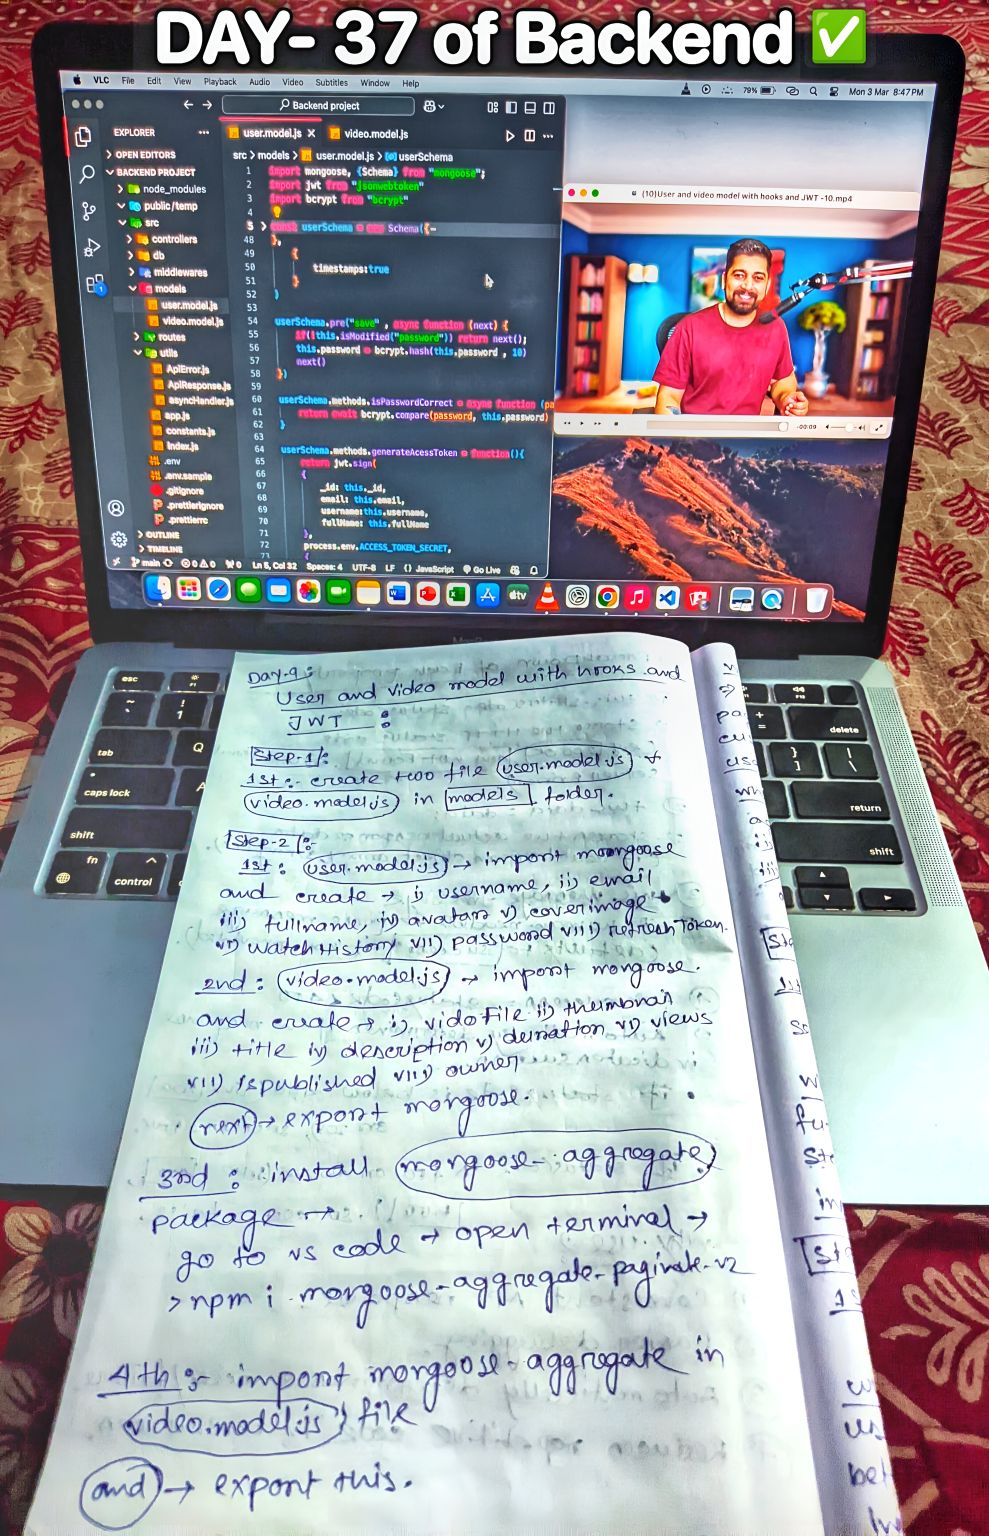 DAY- 37 of Backend ✅
VLC File Edit View Playback Audio Video Subtitles Window Help
79% Mon 3 Mar 8:47 PM
Backend project
EXPLORER
OPEN EDITORS
BACKEND PROJECT
node_modules
public/temp
src
controllers
db
middlewares
models
user.model.js
video.model.js
routes
utils
ApiError.js
ApiResponse.js
asyncHandler.js
app.js
constants.js
index.js
.env
.env.sample
.gitignore
.prettierignore
.prettierrc
OUTLINE
TIMELINE
user.model.js
video.model.js
src > models > user.model.js > userSchema
1 import mongoose, {Schema} from "mongoose";
2 import jwt from "jsonwebtoken"
3 import bcrypt from "bcrypt"
4
5 const userSchema = new Schema({
48 },
49 {
50 timestamps:true
51 }
52 )
53
54 userSchema.pre("save" , async function (next) {
55 if(!this.isModified("password")) return next();
56 this.password = bcrypt.hash(this.password , 10)
57 next()
58 })
59
60 userSchema.methods.isPasswordCorrect = async function (pa
61 return await bcrypt.compare(password, this.password)
62 }
63
64 userSchema.methods.generateAcessToken = function(){
65 return jwt.sign(
66 {
67 _id: this._id,
68 email: this.email,
69 username:this.username,
70 fullName: this.fullName
71 },
72 process.env.ACCESS_TOKEN_SECRET,
73 {
main 0 0 0 Ln 5, Col 32 Spaces: 4 UTF-8 LF {} JavaScript Go Live
(10)User and video model with hooks and JWT -10.mp4
-00:09
tv
esc
F1
~
!
1
tab
Q
caps lock
A
shift
fn
control
+
=
delete
}
]
|
\
return
shift
Day-9:
User and video model with hooks and
JWT :
Step-1:
1st :- create two file user.model.js +
video.model.js in models folder.
Step-2:
1st: user.model.js → import moongoose
and create → i) username, ii) email
iii) fullname, iv) avatar v) coverimage
vi) WatchHistory vii) password viii) refreshToken.
2nd: video.model.js → import mongoose.
and create → i) vidofile ii) thumbnail
iii) title iv) description v) duration vi) views
vii) ispublished viii) owner
next → export mongoose.
3rd : install mongoose-aggregate
package →
go to vs code → open terminal →
> npm i mongoose-aggregate-paginate-v2
4th :- import mongoose-aggregate in
video.model.js file
and → export this.